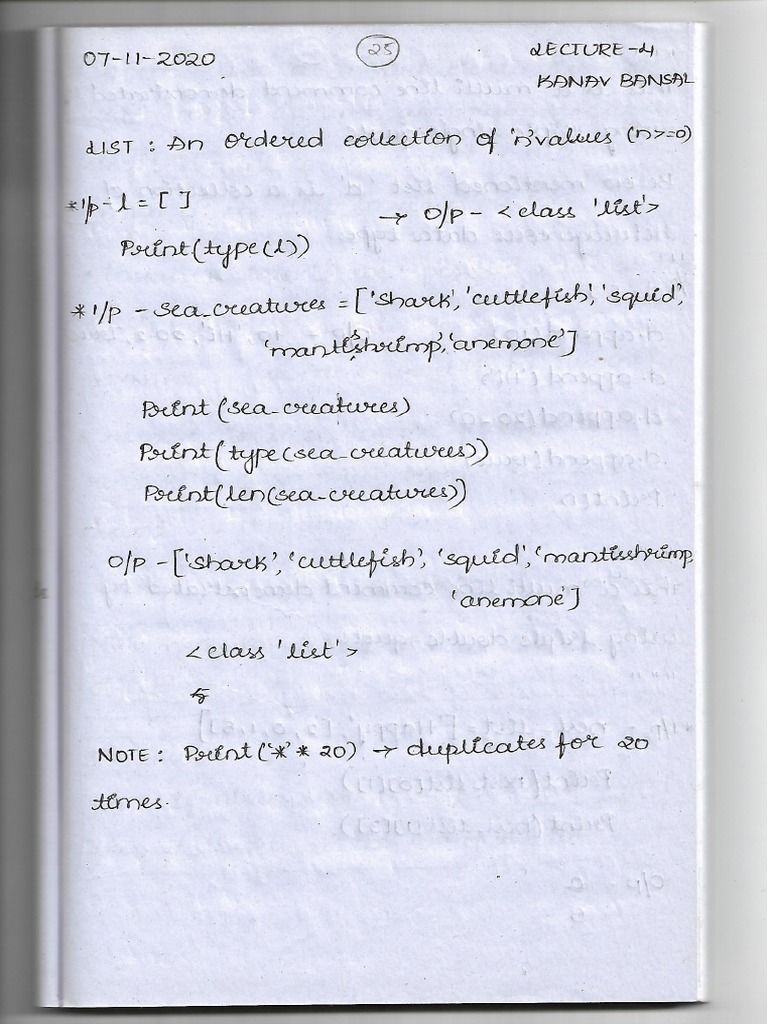 07-11-2020
25
LECTURE-4
KANAV BANSAL
LIST : An ordered collection of 'n' values (n>=0)
*I/p - l = [ ]
→ O/p - <class 'list'>
Print(type(l))
*I/p - sea_creatures = ['shark', 'cuttlefish', 'squid',
'mantisshrimp', 'anemone']
Print (sea_creatures)
Print(type(sea_creatures))
Print(len(sea_creatures))
O/p - ['shark', 'cuttlefish', 'squid', 'mantisshrimp,
'anemone']
<class 'list'>
5
NOTE : Print('*' * 20) → duplicates for 20
times.